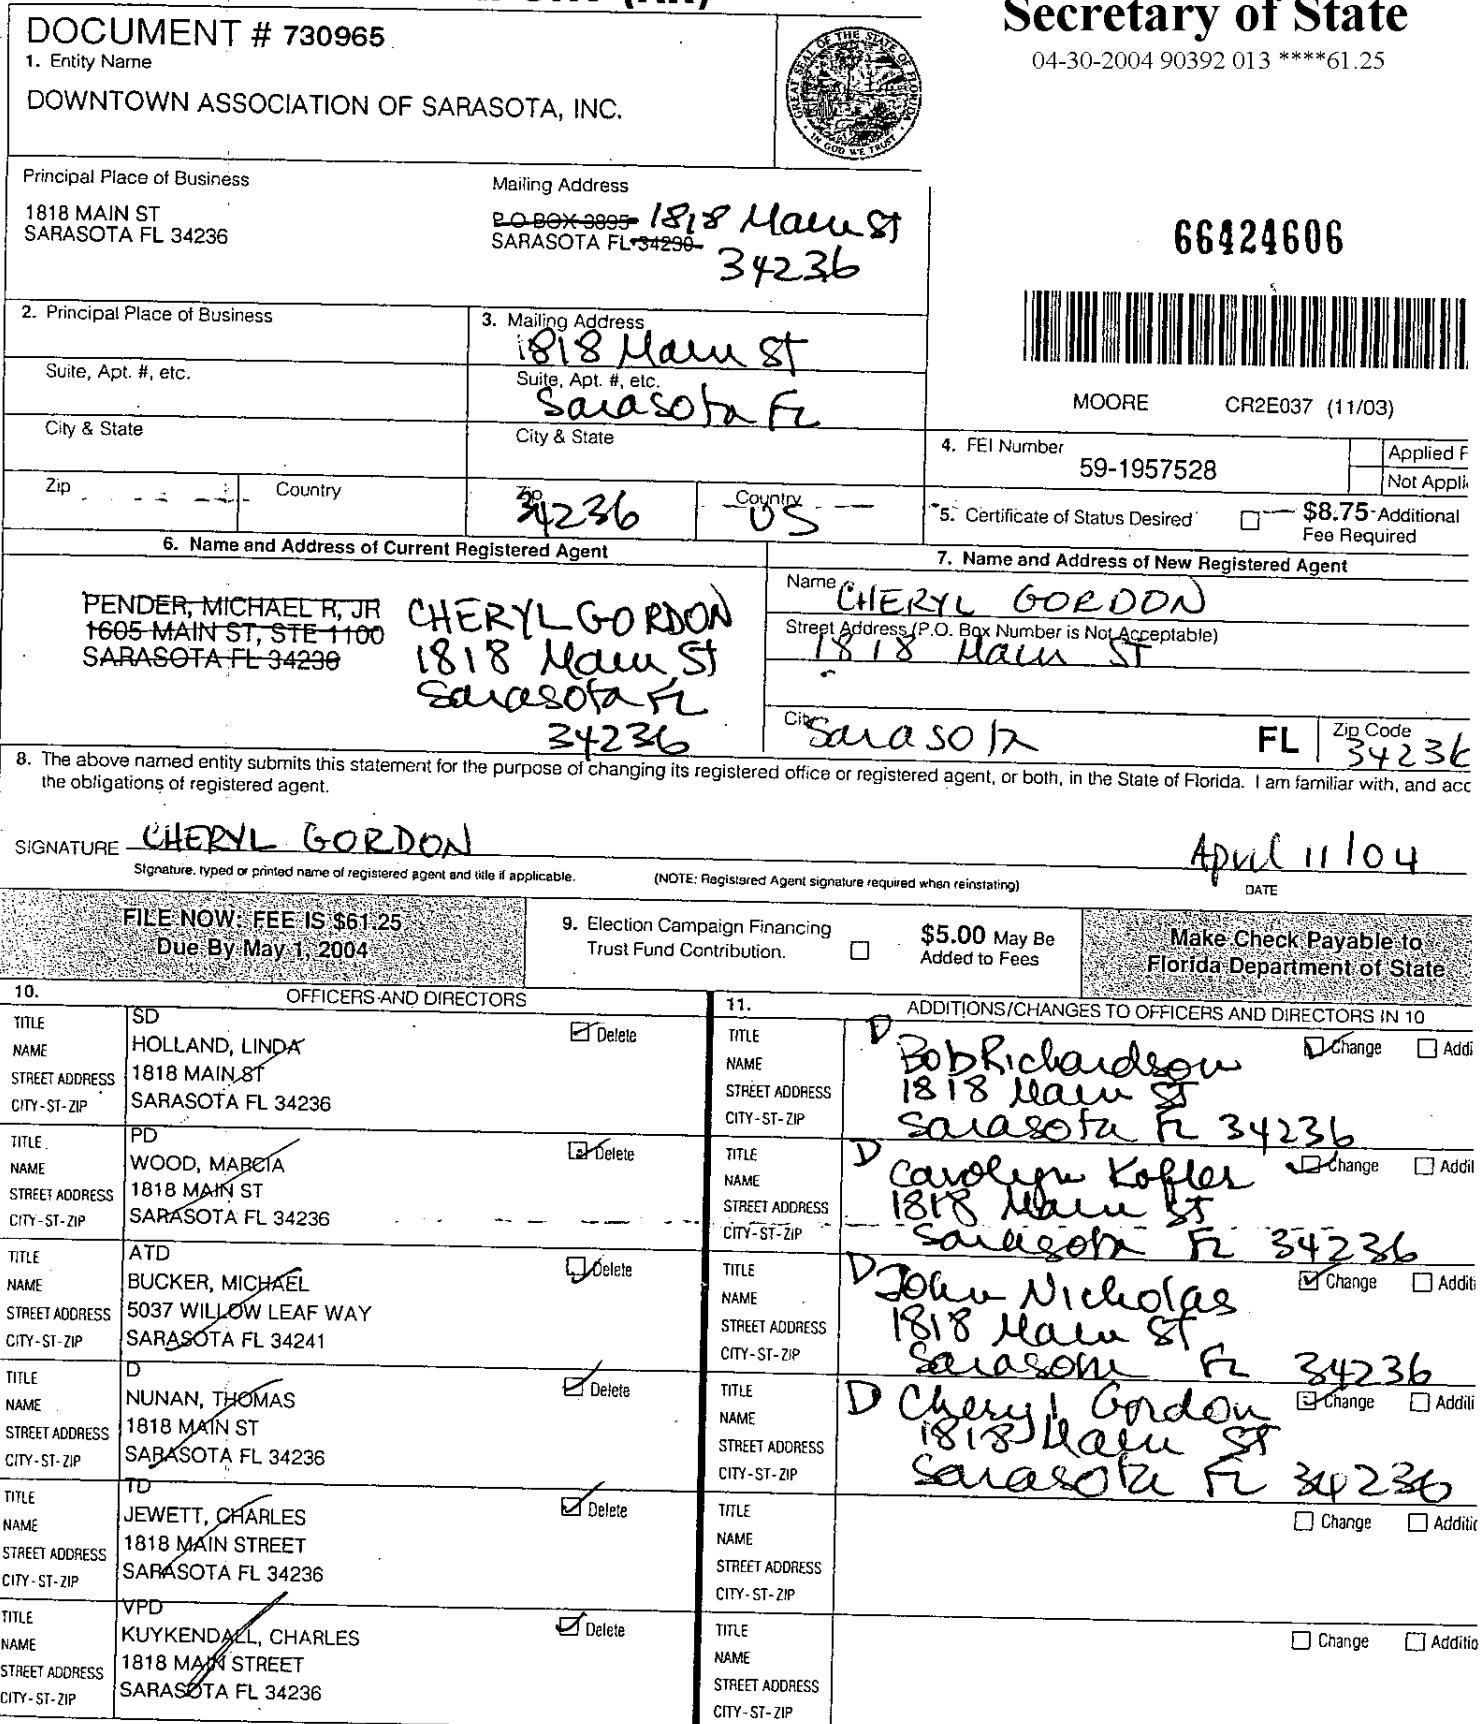 Secretary of State
04-30-2004 90392 013 ****61.25
DOCUMENT # 730965
1. Entity Name
DOWNTOWN ASSOCIATION OF SARASOTA, INC.
GREAT SEAL OF THE STATE OF FLORIDA
IN GOD WE TRUST
Principal Place of Business
1818 MAIN ST
SARASOTA FL 34236
Mailing Address
P.O BOX 3895 1818 Main St
SARASOTA FL 34230
34236
66424606
MOORE CR2E037 (11/03)
2. Principal Place of Business
Suite, Apt. #, etc.
City & State
Zip Country
3. Mailing Address
1818 Main St
Suite, Apt. #, etc.
Sarasota FL
City & State
Zip Country
34236 US
4. FEI Number
59-1957528
Applied F
Not Appli
5. Certificate of Status Desired $8.75 Additional
Fee Required
6. Name and Address of Current Registered Agent
PENDER, MICHAEL R, JR
1605 MAIN ST, STE 1100
SARASOTA FL 34236
CHERYL GORDON
1818 Main St
Sarasota FL
34236
7. Name and Address of New Registered Agent
Name CHERYL GORDON
Street Address (P.O. Box Number is Not Acceptable)
1818 Main ST
City Sarasota FL Zip Code
34236
8. The above named entity submits this statement for the purpose of changing its registered office or registered agent, or both, in the State of Florida. I am familiar with, and acc
the obligations of registered agent.
SIGNATURE CHERYL GORDON April 11/04
Signature, typed or printed name of registered agent and title if applicable. (NOTE: Registered Agent signature required when reinstating) DATE
FILE NOW: FEE IS $61.25
Due By May 1, 2004
9. Election Campaign Financing
Trust Fund Contribution.
$5.00 May Be
Added to Fees
Make Check Payable to
Florida Department of State
10. OFFICERS AND DIRECTORS
TITLE SD Delete
NAME HOLLAND, LINDA
STREET ADDRESS 1818 MAIN ST
CITY-ST-ZIP SARASOTA FL 34236
TITLE PD Delete
NAME WOOD, MARCIA
STREET ADDRESS 1818 MAIN ST
CITY-ST-ZIP SARASOTA FL 34236
TITLE ATD Delete
NAME BUCKER, MICHAEL
STREET ADDRESS 5037 WILLOW LEAF WAY
CITY-ST-ZIP SARASOTA FL 34241
TITLE D Delete
NAME NUNAN, THOMAS
STREET ADDRESS 1818 MAIN ST
CITY-ST-ZIP SARASOTA FL 34236
TITLE TD Delete
NAME JEWETT, CHARLES
STREET ADDRESS 1818 MAIN STREET
CITY-ST-ZIP SARASOTA FL 34236
TITLE VPD Delete
NAME KUYKENDALL, CHARLES
STREET ADDRESS 1818 MAIN STREET
CITY-ST-ZIP SARASOTA FL 34236
11. ADDITIONS/CHANGES TO OFFICERS AND DIRECTORS IN 10
TITLE D Change Addi
NAME Bob Richardson
STREET ADDRESS 1818 Main St
CITY-ST-ZIP Sarasota FL 34236
TITLE D Change Addi
NAME Carolyn Kofler
STREET ADDRESS 1818 Main St
CITY-ST-ZIP Sarasota FL 34236
TITLE D Change Additi
NAME John Nicholas
STREET ADDRESS 1818 Main St
CITY-ST-ZIP Sarasota FL 34236
TITLE D Change Additi
NAME Cheryl Gordon
STREET ADDRESS 1818 Main St
CITY-ST-ZIP Sarasota FL 34236
TITLE Change Additio
NAME
STREET ADDRESS
CITY-ST-ZIP
TITLE Change Additio
NAME
STREET ADDRESS
CITY-ST-ZIP